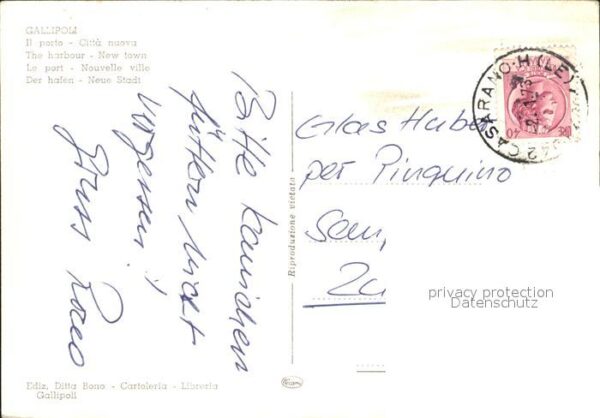 GALLIPOLI
Il porto - Città nuova
The harbour - New town
Le port - Nouvelle ville
Der hafen - Neue Stadt
Bitte Kaninchen
füttern nicht
vergessen!
Gruss Rocco
Riproduzione vietata
Ediz. Ditta Bono - Cartoleria - Libreria
Gallipoli
CASARANO-H (LE)
40
Glas Huba
per Pinguino
Zu
privacy protection
Datenschutz